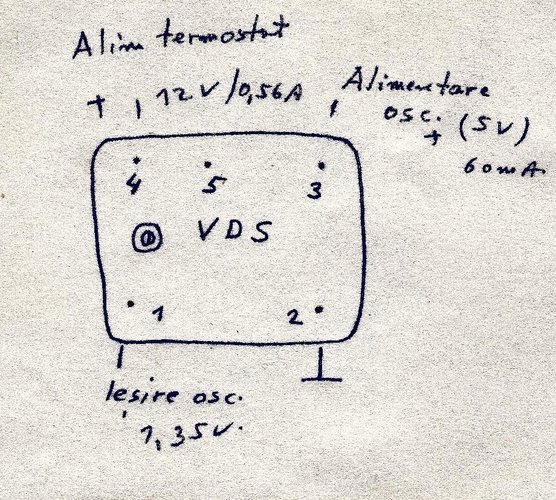 Alim termostat
+ 12V/0,56A
Alimentare
osc. + (5V)
60mA.
4 5 3
VDS
1 2
Iesire osc.
1,35V.